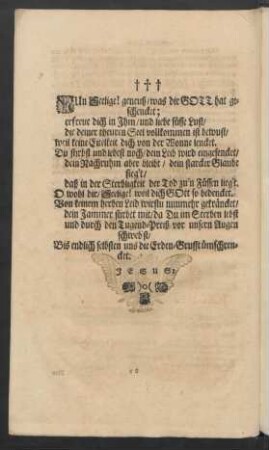 † † †
NUn Seelige! geneuß / was dir GOTT hat ge-
schencket;
erfreue dich in Ihm / und liebe süsse Lust /
die deiner theuren Seel vollkommen ist bewust /
weil keine Eitelkeit dich von der Wonne lencket.
Du stirbst und lebest noch / dein Leib wird eingesencket /
dein Nachruhm aber bleibt / dein starcker Glaube
sieg't /
daß in der Sterbigkeit der Tod zu'n Füssen lieg't.
O wohl dir / Seelige! weil dich GOtt so bedencket.
Von keinem herben Leid wirstu nunmehr gekräncket /
dein Jammer stirbet mit / da Du im Sterben lebst
und durch den Tugend-Preiß vor unsern Augen
schwebst /
Bis endlich selbsten uns die Erden-Grufft ümschren-
cket.
JESUS